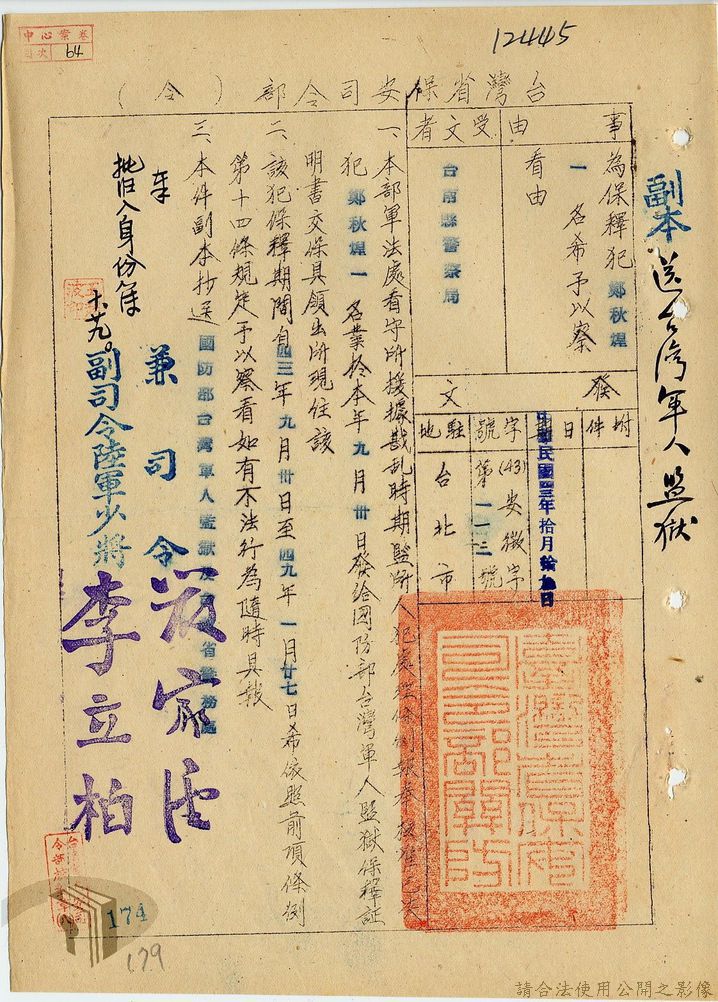 12445
中心案卷
目次 64
副本 送台灣軍人監獄
台灣省保安司令部(令)
事由
為保釋犯鄭秋煌
一名希予以察
看由
受文者
台南縣警察局
發文
附件
日期
中華民國四三年拾月拾九日
字號
(43)安徽字
第一一三號
駐地
台北市
一、本部軍法處看守所援據戡亂時期監所人犯處理條例報奉核准已決
犯鄭秋煌一名業於本年九月卅日發給國防部台灣軍人監獄保釋証
明書交保具領出所現住該
二、該犯保釋期間自四三年九月卅日至四九年一月廿七日希依照前項條例
第十四條規定予以察看如有不法行為隨時具報
三、本件副本抄送國防部台灣軍人監獄及台灣省警務處
兼司令
副司令陸軍少將李立柏
批归入身份簿
十.廿九。
174
179
請合法使用公開之影像